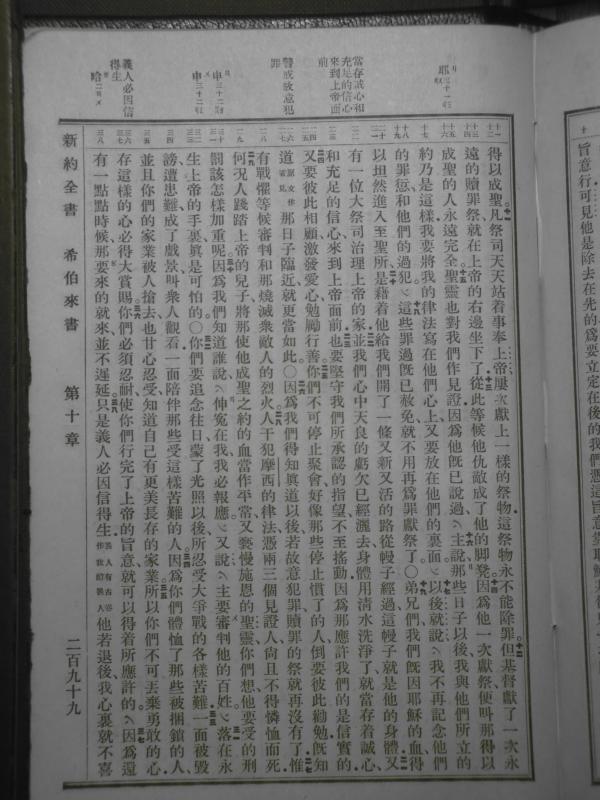 當存誠心和
充足的信心
來到上帝面
前
警戒故意犯
罪
義人必因信
得生
得以成聖凡祭司天天站着事奉上帝屢次獻上一樣的祭物這祭物永不能除罪但基督獻了一次永
遠的贖罪祭就在上帝的右邊坐下了從此等候他仇敵成了他的脚凳因爲他一次獻祭便叫那得以
成聖的人永遠完全聖靈也對我們作見證因爲他既已說過主說那些日子以後我與他們所立的
約乃是這樣我要將我的律法寫在他們心上又要放在他們的裏面以後就說我不再記念他們
的罪愆和他們的過犯這些罪過旣已赦免就不用再爲罪獻祭了〇弟兄們我們旣因耶穌的血得
以坦然進入至聖所是藉着他給我們開了一條又新又活的路從幔子經過這幔子就是他的身體又
有一位大祭司治理上帝的家並我們心中天良的虧欠已經灑去身體用清水洗淨了就當存着誠心
和充足的信心來到上帝面前也要堅守我們所承認的指望不至搖動因爲那應許我們的是信實的
又要彼此相顧激發愛心勉勵行善你們不可停止聚會好像那些停止慣了的人倒要彼此勸勉旣知
道那日子臨近就更當如此〇因爲我們得知眞道以後若故意犯罪贖罪的祭就再沒有了惟
有戰懼等候審判和那燒滅衆敵人的烈火人干犯摩西的律法憑兩三個見證人尙且不得憐恤而死
何况人踐踏上帝的兒子將那使他成聖之約的血當作平常又褻慢施恩的聖靈你們想他要受的刑
罰該怎樣加重呢因爲我們知道誰說伸寃在我我必報應又說主要審判他的百姓落在永
生上帝的手裏眞是可怕的〇你們要追念往日蒙了光照以後所忍受大爭戰的各樣苦難一面被毀
謗遭患難成了戲景叫衆人觀看一面陪伴那些受這樣苦難的人因爲你們體恤了那些被捆鎖的人
並且你們的家業被人搶去也甘心忍受知道自己有更美長存的家業所以你們不可丟棄勇敢的心
存這樣的心必得大賞賜你們必須忍耐使你們行完了上帝的旨意就可以得着所應許的因爲還
有一點點時候那要來的就來並不遲延只是義人必因信得生他若退後我心裏就不喜
新約全書　希伯來書　第十章　二百九十九
旨意行可見他是除去在先的爲要立定在後的我們憑這旨意靠耶穌